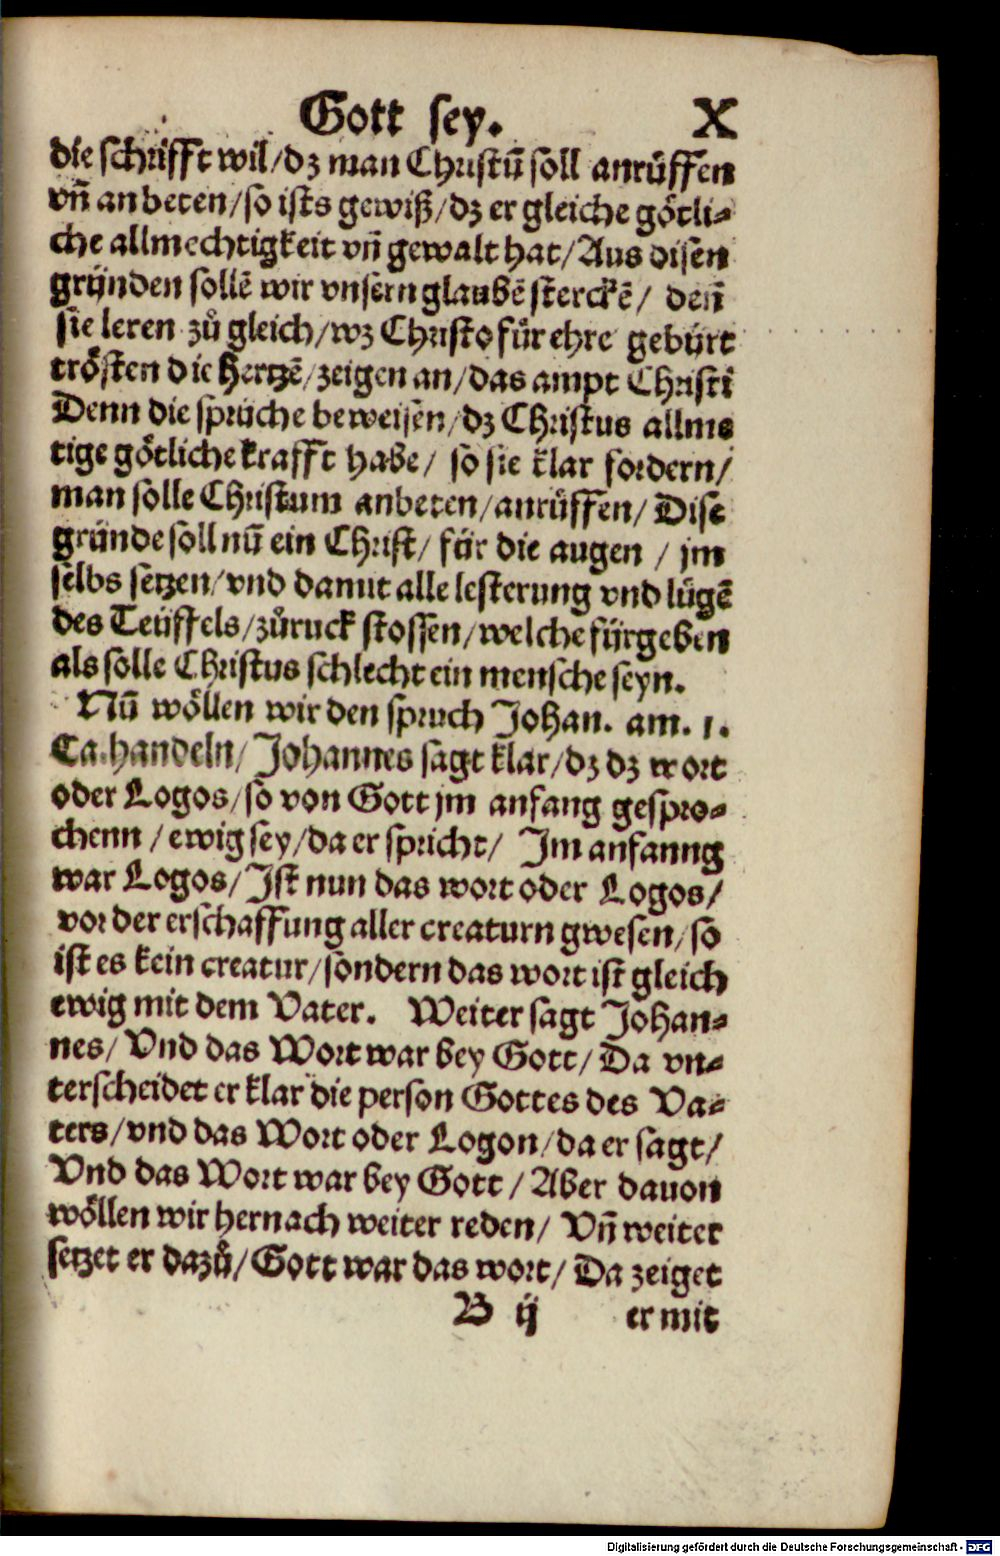 Gott sey. X
die schrifft wil/dz man Christū soll anrůffen
vñ anbeten/so ists gewiß/dz er gleiche götli-
che allmechtigkeit vñ gewalt hat/Aus disen
gründen sollē wir vnsern glaubē sterckē/ deñ
sie leren zů gleich/wz Christo für ehre gebürt
trösten die hertzē/zeigen an/das ampt Christi
Denn die sprüche beweisen/dz Christus allme
tige götliche krafft habe/ so sie klar fordern/
man solle Christum anbeten/anrůffen/ Dise
gründe soll nū ein Christ/ für die augen / jm
selbs setzen/vnd damit alle lesterung vnd lügē
des Teüffels/zůruck stossen/welche fürgeben
als solle Christus schlecht ein mensche seyn.
Nū wöllen wir den spruch Johan. am. 1.
Ca.handeln/ Johannes sagt klar/dz dz wort
oder Logos/so von Gott jm anfang gespro-
chenn / ewig sey/da er spricht/ Im anfanng
war Logos/Ist nun das wort oder Logos/
vor der erschaffung aller creaturn gwesen/so
ist es kein creatur/sondern das wort ist gleich
ewig mit dem Vater. Weiter sagt Johan-
nes/ Vnd das Wort war bey Gott/ Da vn-
terscheidet er klar die person Gottes des Va-
ters/vnd das Wort oder Logon/da er sagt/
Vnd das Wort war bey Gott / Aber dauon
wöllen wir hernach weiter reden/ Vñ weiter
setzet er dazů/ Gott war das wort/ Da zeiget
B ij er mit
Digitalisierung gefördert durch die Deutsche Forschungsgemeinschaft - DFG